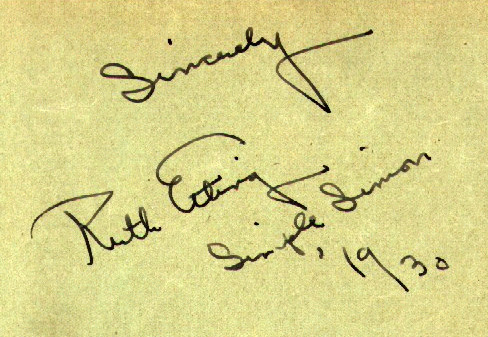 Sincerely
Ruth Etting
Simple Simon
1930